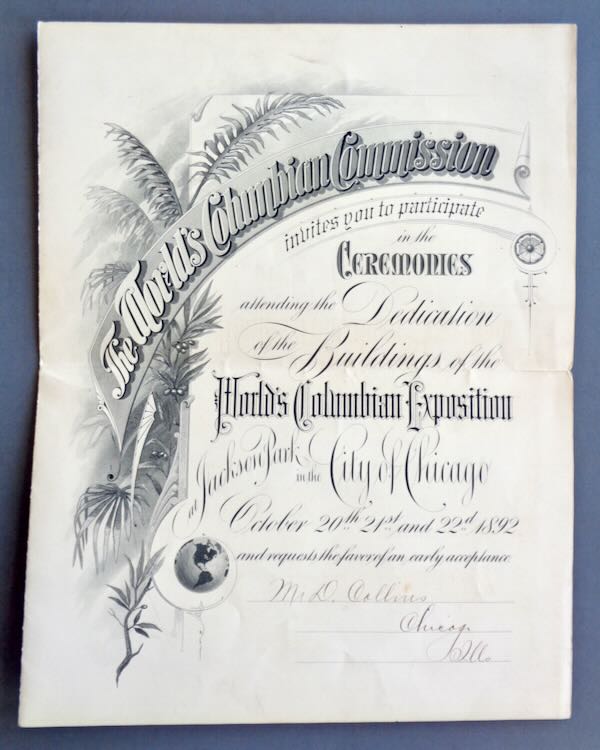 The World's Columbian Commission
invites you to participate
in the
CEREMONIES
attending the Dedication
of the Buildings of the
World's Columbian Exposition
at Jackson Park in the City of Chicago
October 20th 21st and 22nd 1892
and requests the favor of an early acceptance.
Mr D. Collins
Chicago
Ills